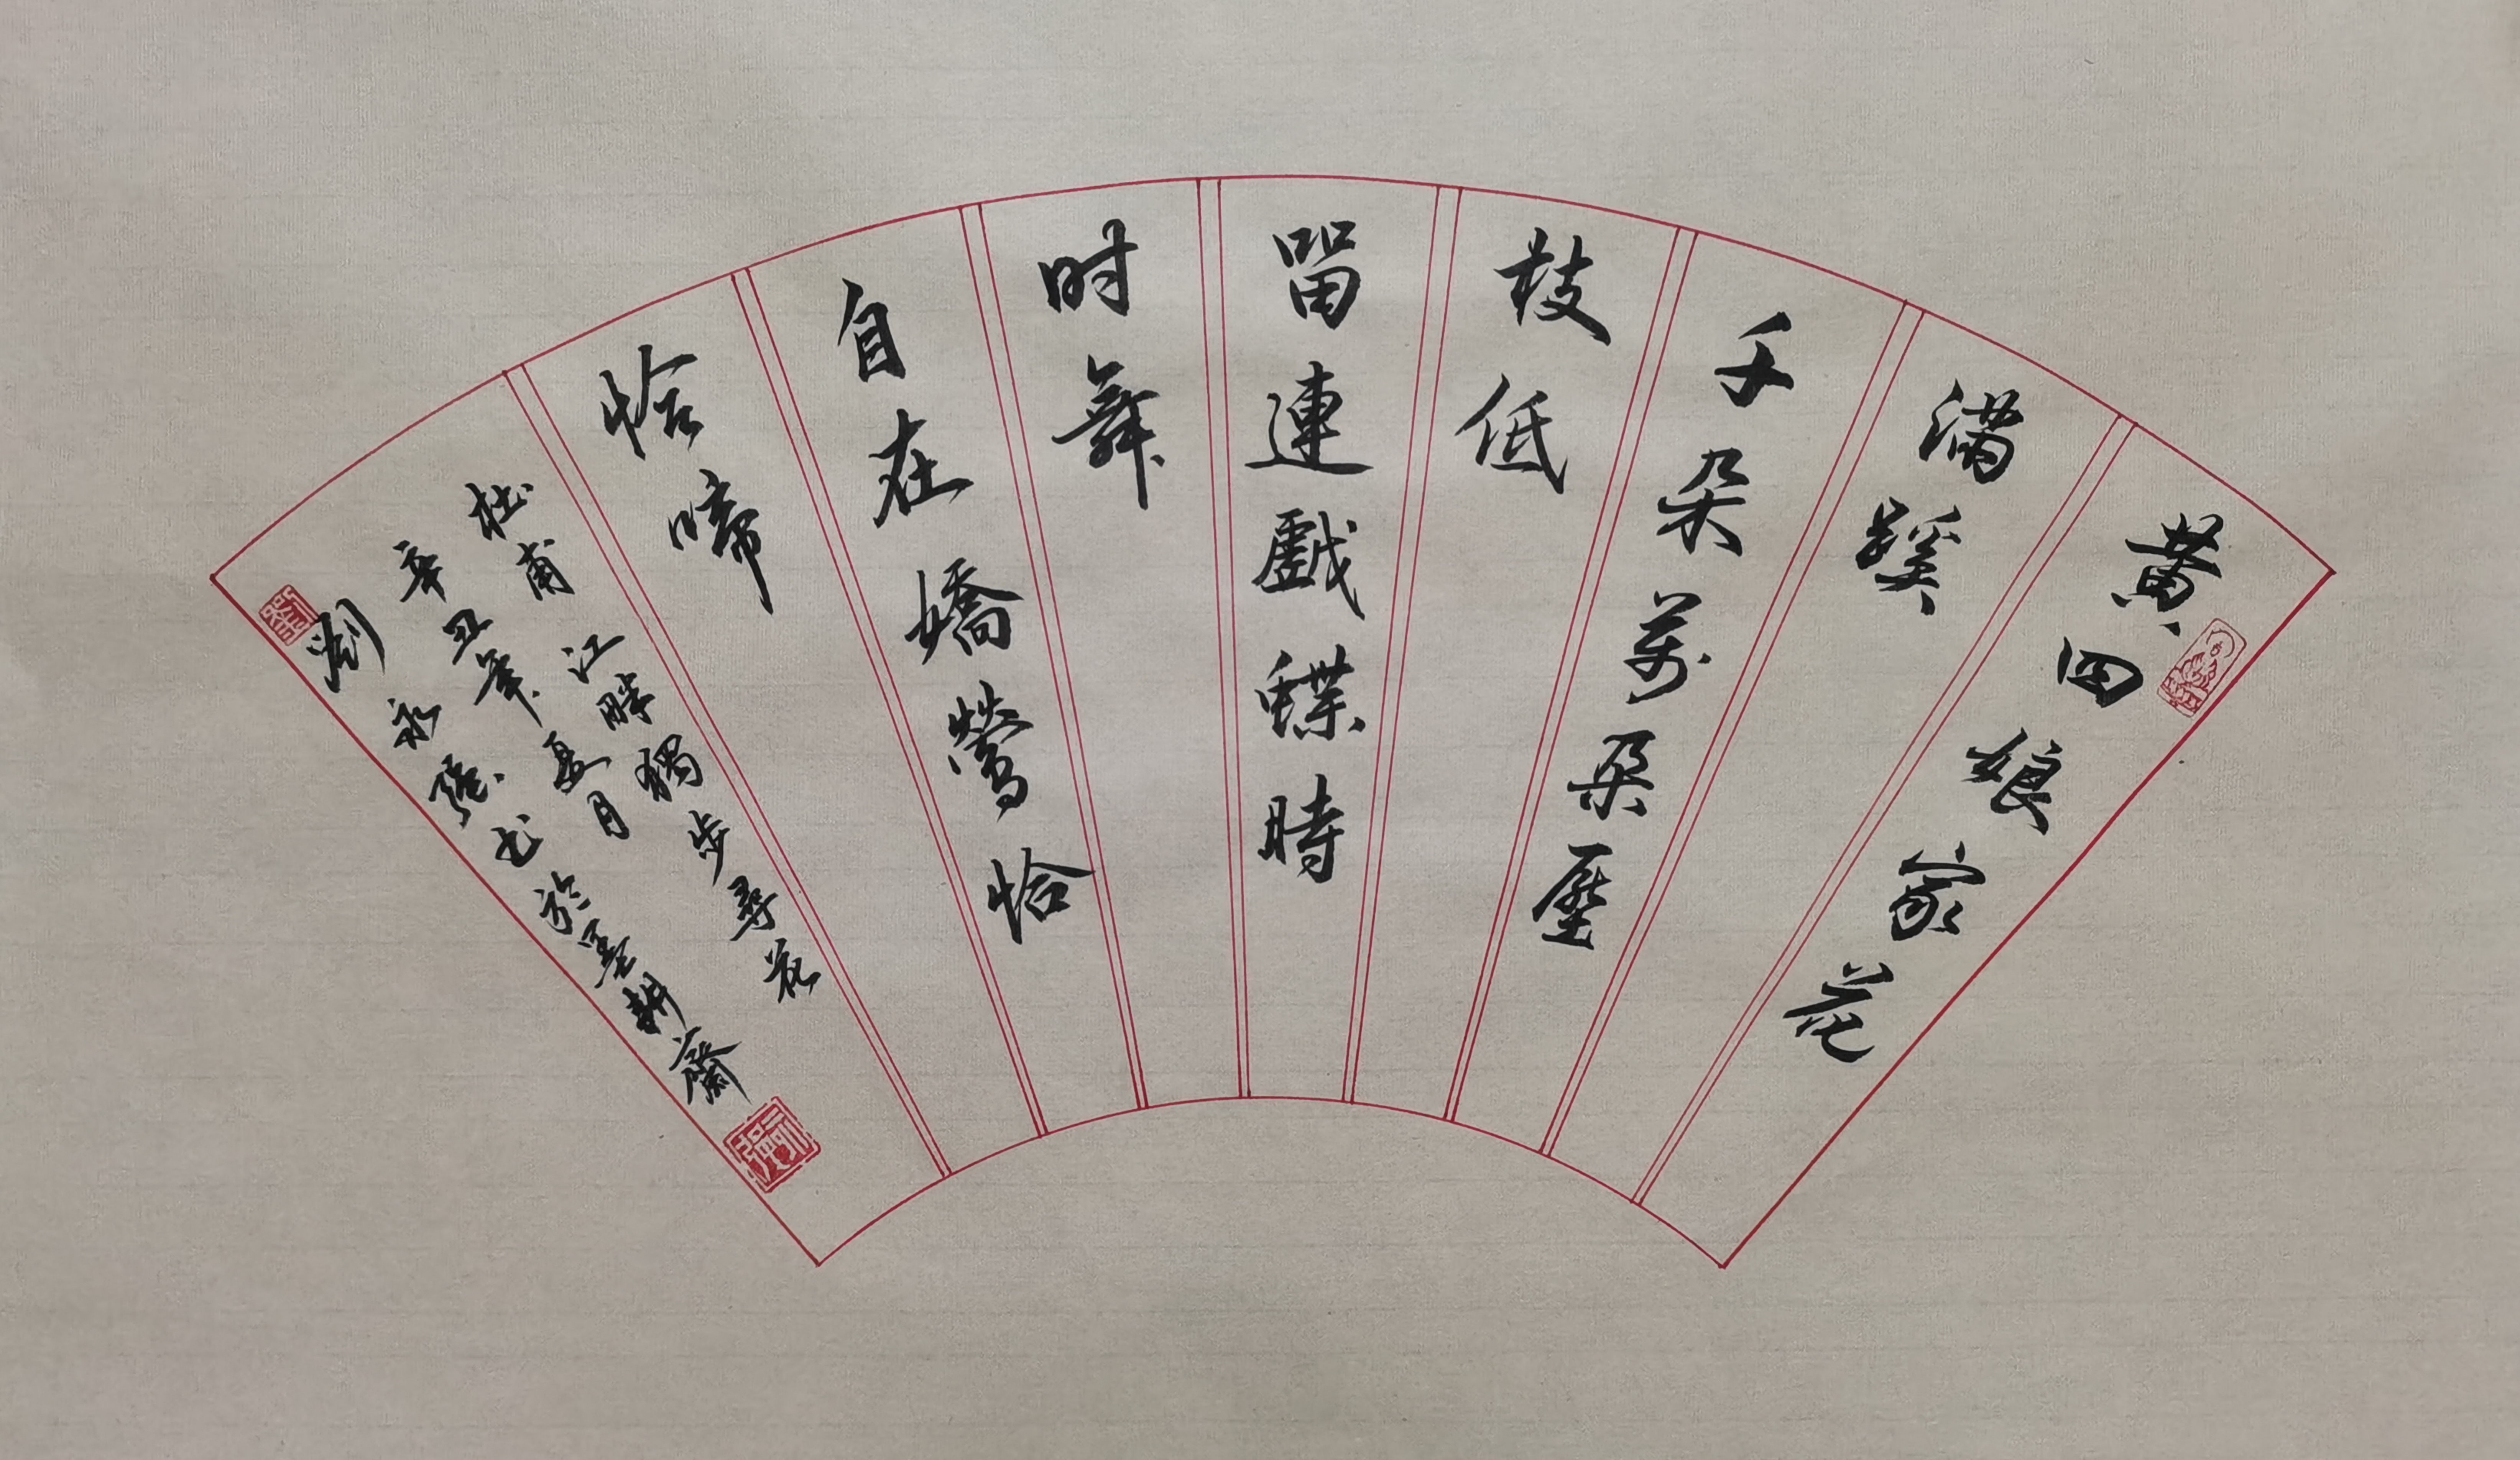 黄四娘家花
满蹊
千朵萬朵壓
枝低
留連戲蝶時
时舞
自在嬌鶯恰
恰啼
杜甫江畔獨步尋花
辛丑年夏月
劉永强书於墨耕齋